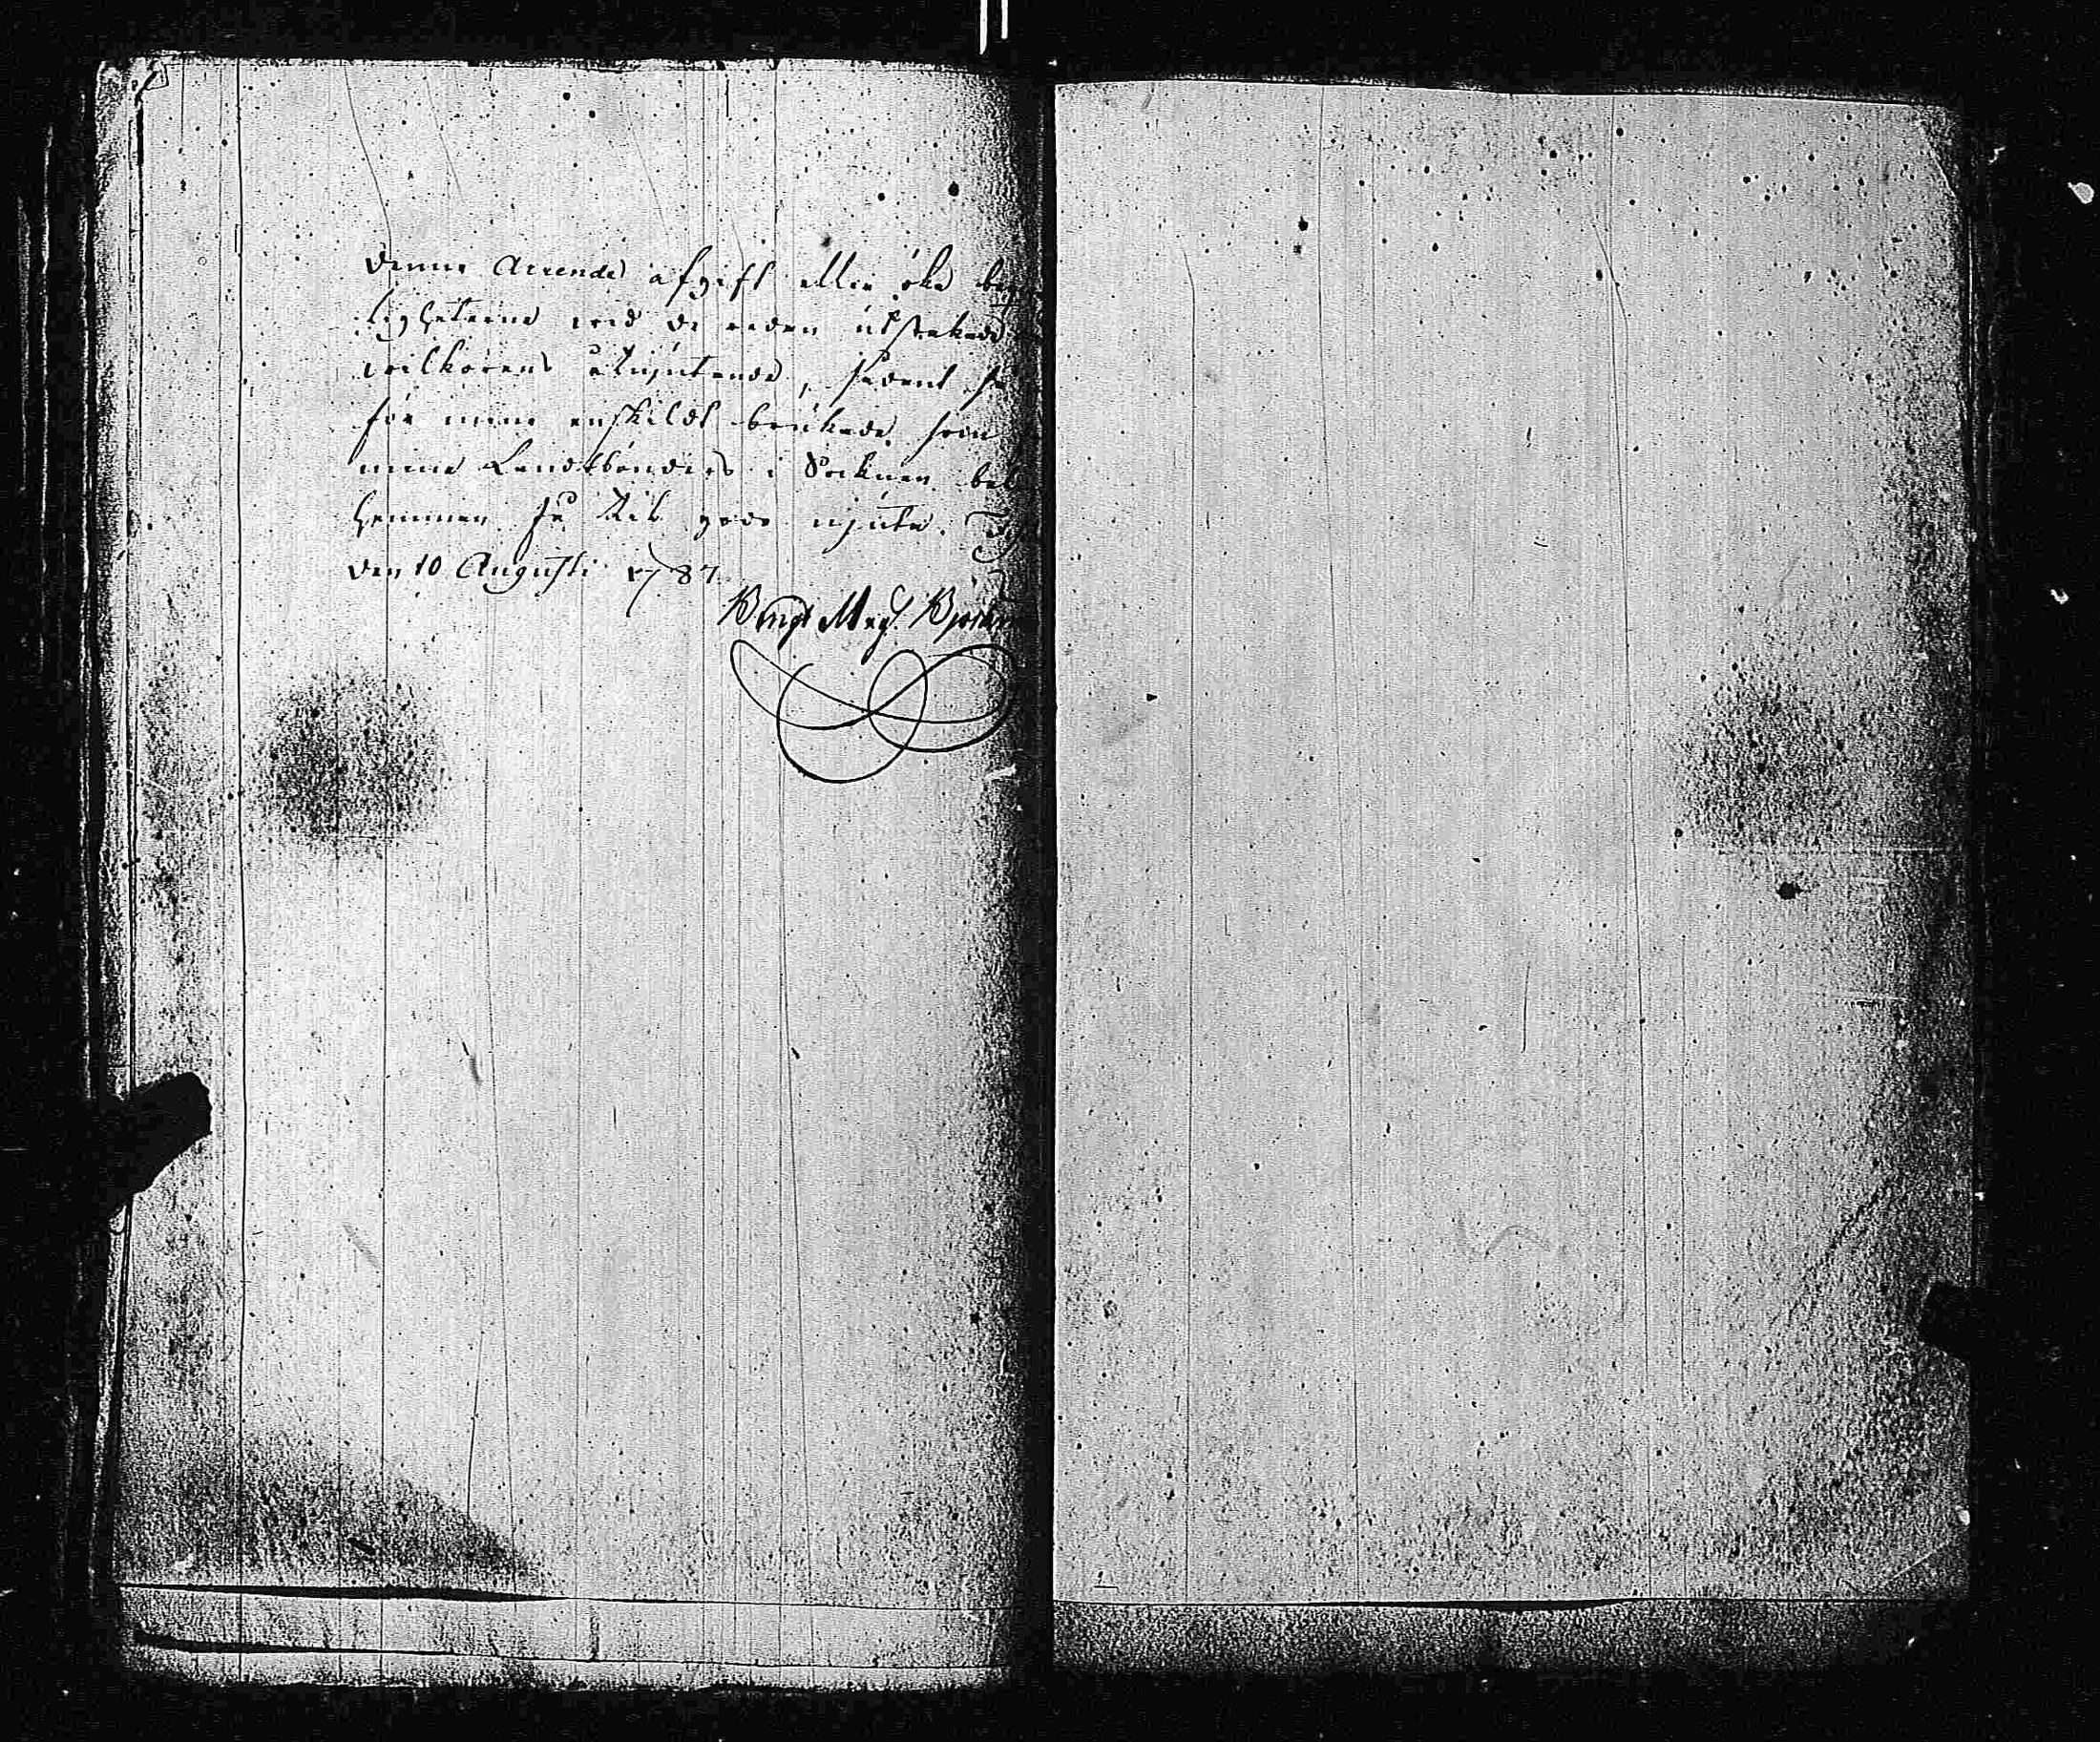 denne Arrende afgift eller öka be
ligheterne vid de redan utstakade
vilkorens åtnjutande, sedant så
för mine enskildt brukade som
mine Landtbönders i Socknen bel
hemman få till godo njuta.
den 10 Augusti 1787.
Bengt Magn.